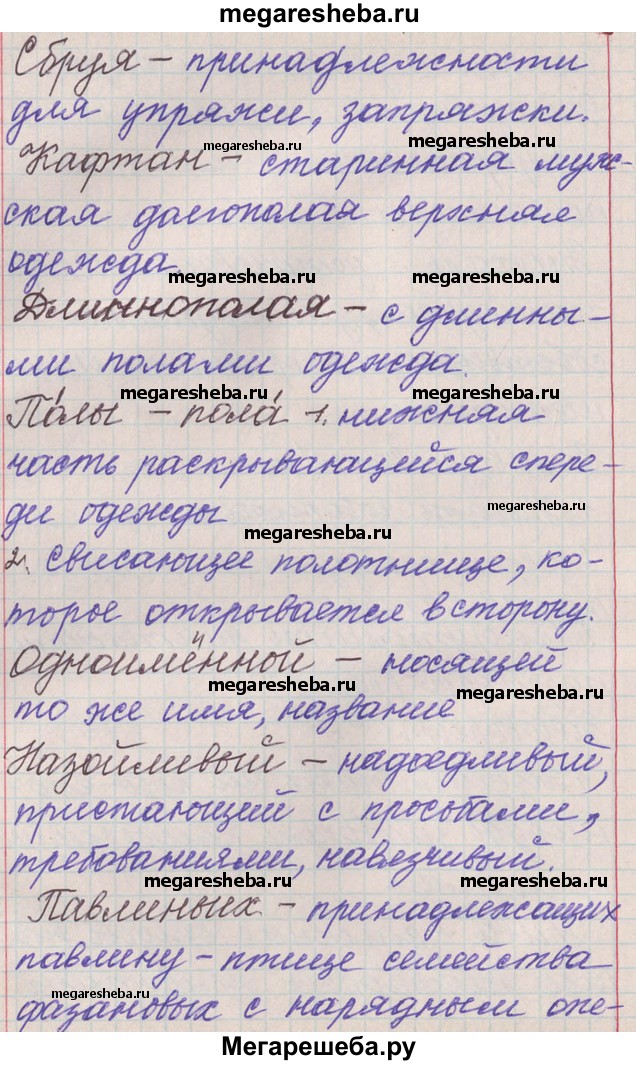 megaresheba.ru
Сбруя – принадлежности
для упряжи, запряжки.
megaresheba.ru megaresheba.ru
Кафтан – старинная муж-
ская долгополая верхняя
одежда.
megaresheba.ru megaresheba.ru
Длиннополая – с длинны-
ми полами одежда.
megaresheba.ru megaresheba.ru
По́лы – пола́ – 1. нижняя
часть раскрывающейся спере-
ди одежды
megaresheba.ru
megaresheba.ru
2. Свисающее полотнище, ко-
торое открывается в сторону.
Одноимённой – носящей
megaresheba.ru megaresheba.ru
то же имя, название
Назойливый – надоедливый,
пристающий с просьбами,
требованиями, навязчивый.
megaresheba.ru megaresheba.ru
Павлиньих – принадлежащих
павлину – птице семейства
megaresheba.ru
фазановых с нарядным опе-
Мегарешеба.ру